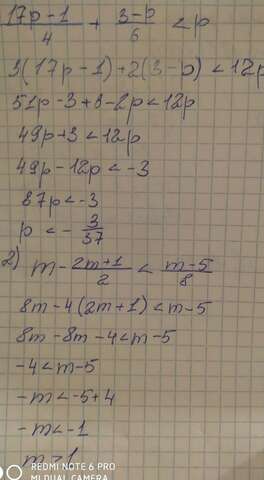 17p-1/4 + 3-p/6 < p
3(17p-1)+2(3-p) < 12p
51p-3+6-2p<12p
49p+3<12p
49p-12p<-3
37p<-3
p < - 3/37
2) m - 2m+1/2 < m-5/8
8m-4(2m+1)<m-5
8m-8m-4<m-5
-4<m-5
-m<-5+4
-m<-1
m>1
REDMI NOTE 6 PRO
MI DUAL CAMERA